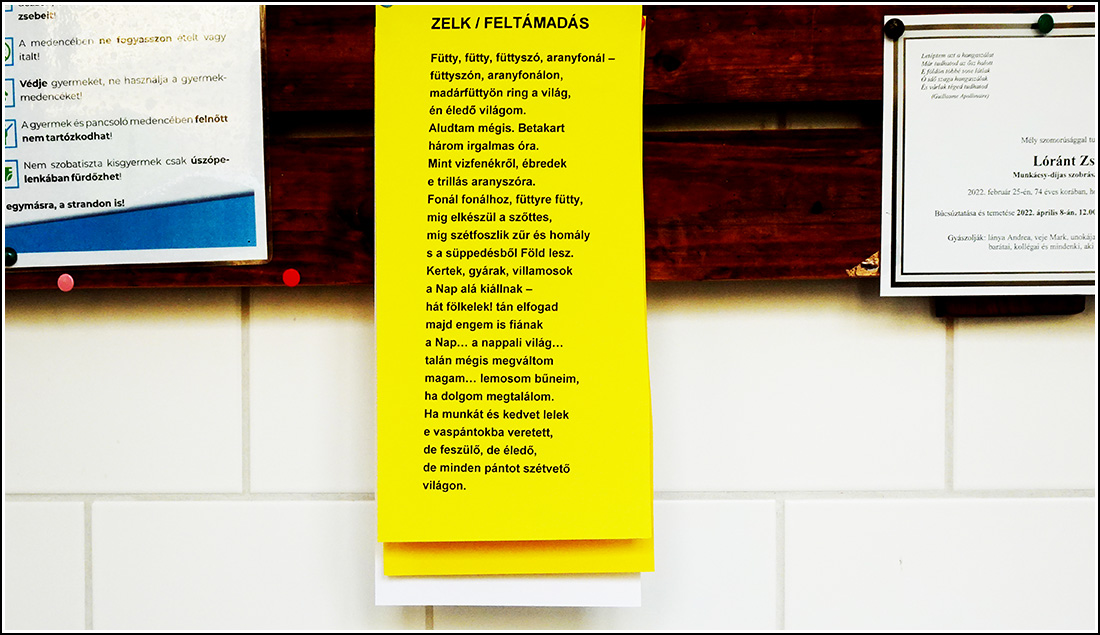 zsebeit!
A medencében ne fogyasszon ételt vagy
italt!
Védje gyermekét, ne használja a gyermek-
medencéket!
A gyermek és pancsoló medencében felnőtt
nem tartózkodhat!
Nem szobatiszta kisgyermek csak úszópe-
lenkában fürdőzhet!
egymásra, a strandon is!
ZELK / FELTÁMADÁS
Fütty, fütty, füttyszó, aranyfonál –
füttyszón, aranyfonálon,
madárfüttyön ring a világ,
én éledő világom.
Aludtam mégis. Betakart
három irgalmas óra.
Mint vizfenékről, ébredek
e trillás aranyszóra.
Fonál fonálhoz, füttyre fütty,
mig elkészül a szőttes,
mig szétfoszlik zűr és homály
s a süppedésből Föld lesz.
Kertek, gyárak, villamosok
a Nap alá kiállnak –
hát fölkelek! tán elfogad
majd engem is fiának
a Nap... a nappali világ...
talán mégis megváltom
magam... lemosom bűneim,
ha dolgom megtalálom.
Ha munkát és kedvet lelek
e vaspántokba veretett,
de feszülő, de éledő,
de minden pántot szétvető
világon.
Letéptem ezt a hangaszálat
Már tudhatod az ősz halott
E földön többé sose látlak
Ó idő szaga hangaszálak
És várlak téged tudhatod
(Guillaume Apollinaire)
Mély szomorúsággal tu
Lóránt Zs
Munkácsy-díjas szobrás
2022. február 25-én, 74 éves korában, h
Búcsúztatása és temetése 2022. április 8-án, 12.00
Gyászolják: lánya Andrea, veje Mark, unokája
barátai, kollégái és mindenki, aki